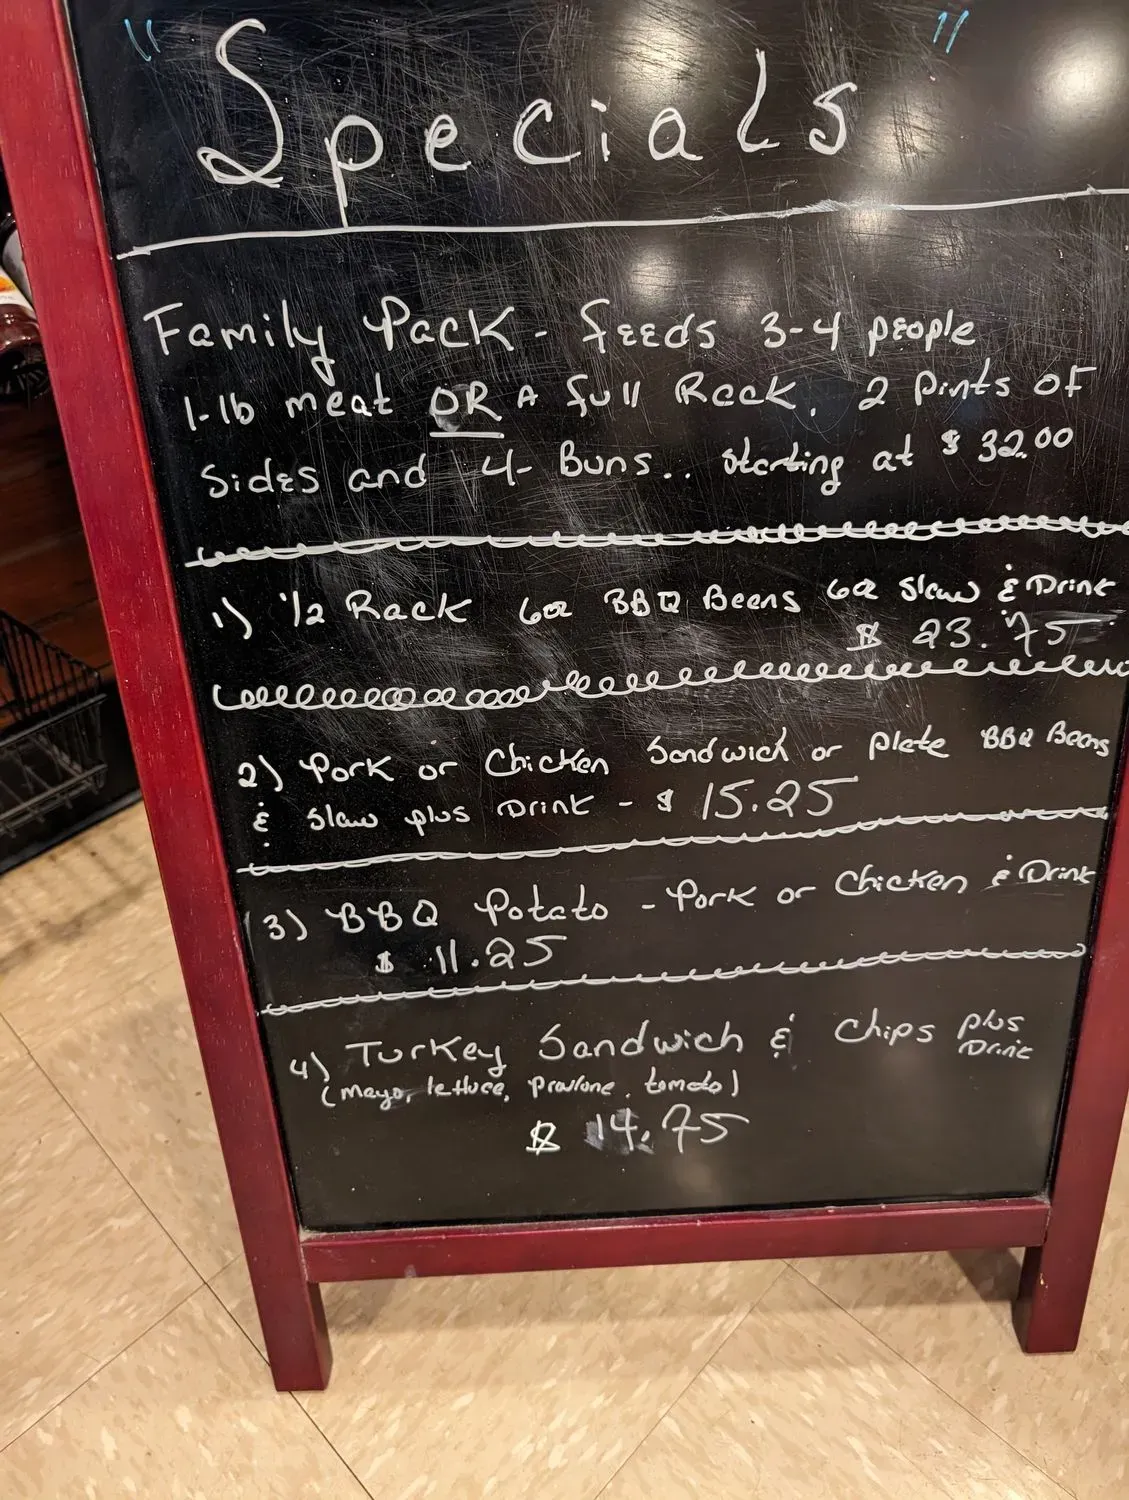 "Specials"
Family Pack - feeds 3-4 people
1-lb meat OR A full Rack. 2 Pints OF
Sides and 4- Buns.. starting at $32.00
1) 1/2 Rack 6oz BBQ Beans 6oz Slaw & Drink
$23.75
2) Pork or Chicken Sandwich or plate BBQ Beans
& slaw plus Drink - $15.25
3) BBQ Potato - Pork or Chicken & Drink
$11.25
4) Turkey Sandwich & Chips plus
Drink
(mayo, lettuce, provlone, tomato)
$14.75